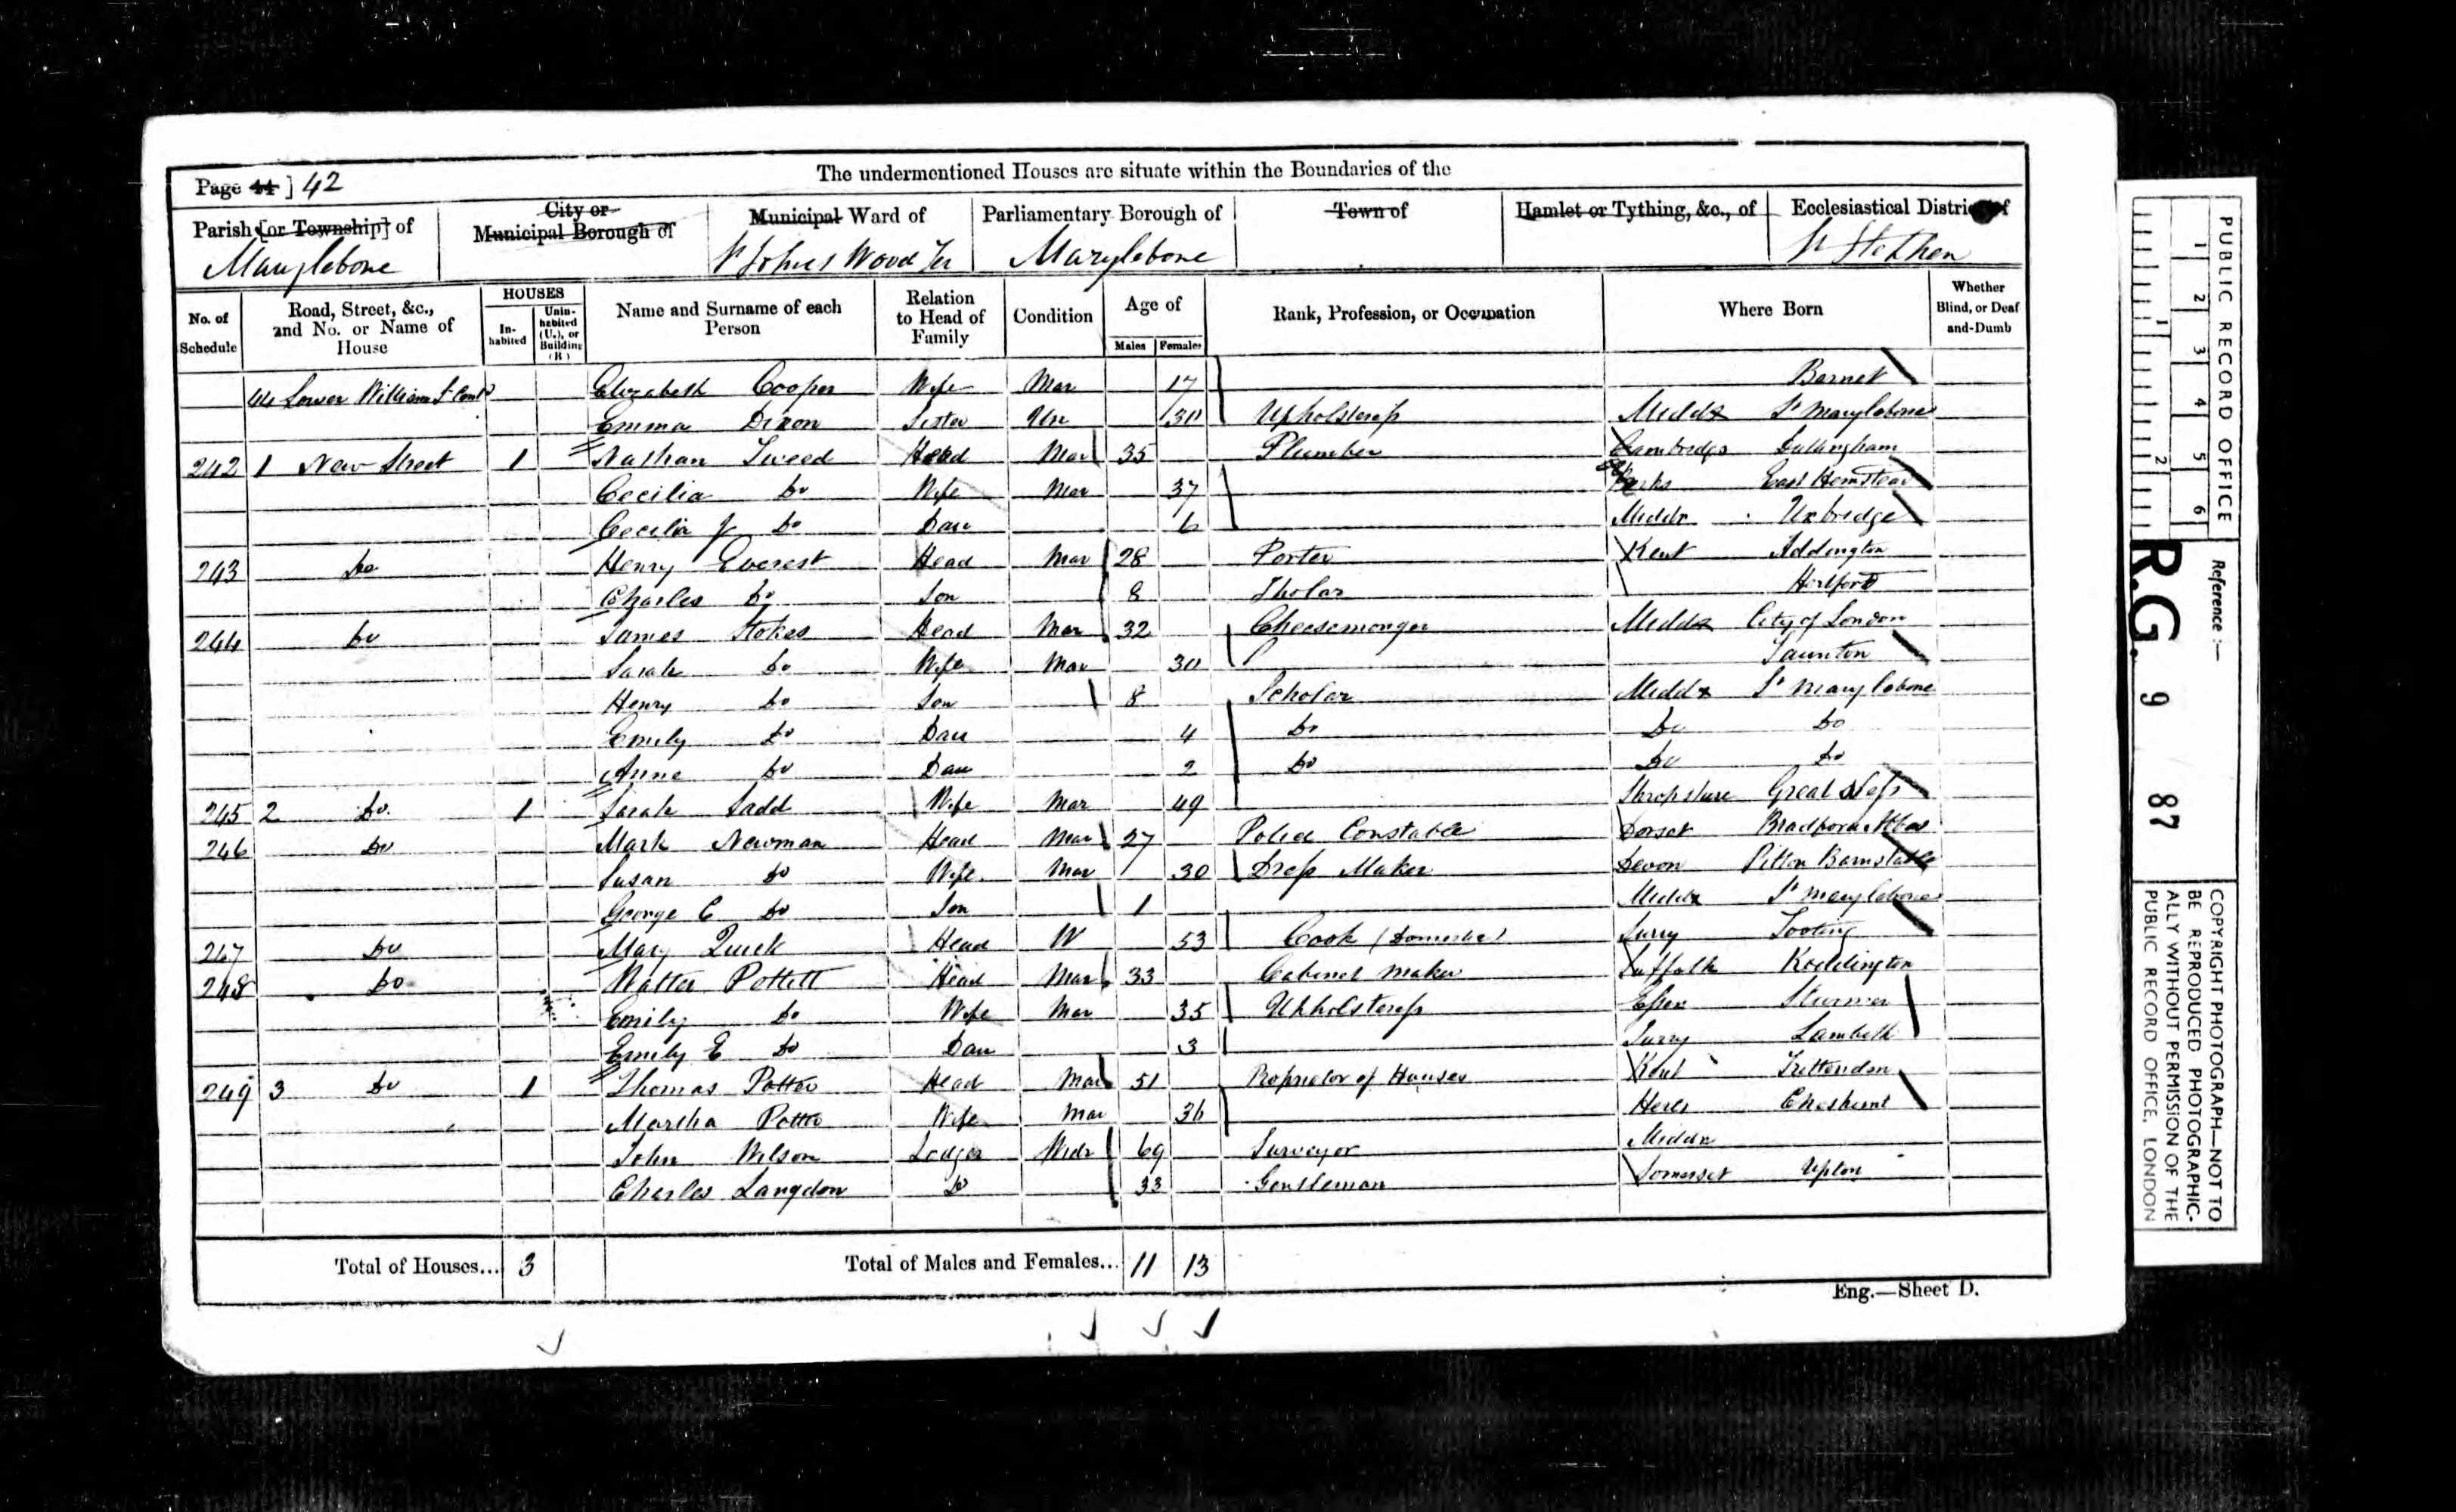 The undermentioned Houses are situate within the Boundaries of the
Page 44 ] 42
Parish [or Township] of
Marylebone
City or
Municipal Borough of
Municipal Ward of
St Johns Wood Ter
Parliamentary Borough of
Marylebone
Town of
Hamlet or Tything, &c., of
Ecclesiastical District of
St Stephen
No. of Schedule
Road, Street, &c., and No. or Name of House
HOUSES
In-habited
Unin-habited (U.), or Building (B)
Name and Surname of each Person
Relation to Head of Family
Condition
Age of
Males Females
Rank, Profession, or Occupation
Where Born
Whether Blind, or Deaf and-Dumb
44 Lower William St Contd Elizabeth Cooper Wife Mar 17 Barnet
Emma Dixon Sister Un 30 Upholsteress Middx St Marylebone
242 1 New Street 1 Nathan Tweed Head Mar 35 Plumber Cambridges Dullingham
Cecilia Do Wife Mar 37 Berks East Hemstead
Cecilia J Do Dau 6 Middx Uxbridge
243 Do Henry Everest Head Mar 28 Porter Kent Addington
Charles Do Son 8 Sholar Hertford
244 Do James Stokes Head Mar 32 Cheesemonger Middx City of London
Sarah Do Wife Mar 30 Taunton
Henry Do Son 8 Scholar Middx St Marylebone
Emily Do Dau 4 Do Do Do
Anne Do Dau 2 Do Do Do
245 2 Do. 1 Sarah Ladd Wife Mar 49 Shropshire Great Ness
246 Do Mark Newman Head Mar 27 Police Constable Dorset Bradford Abbas
Susan Do Wife Mar 30 Dress Maker Devon Pilton Barnstable
George C Do Son 1 Middx St Marylebone
247 Do Mary Quick Head W 53 Cook (Domestic) Surry Tooting
248 Do Walter Pottett Head Mar 33 Cabinet Maker Suffolk Keddington
Emily Do Wife Mar 35 Upholsteress Essex Sturmer
Emily E Do Dau 3 Surry Lambeth
249 3 Do 1 Thomas Potter Head Mar 51 Proprietor of Houses Kent Frittenden
Martha Potter Wife Mar 36 Herts Cheshunt
John Wilson Lodger Widr 69 Surveyor Middx
Charles Langdon Do 33 Gentleman Somerset Upton
Total of Houses... 3
Total of Males and Females... 11 13
Eng.—Sheet D.
PUBLIC RECORD OFFICE
1 2 3 4 5 6
1 2
Reference :—
R.G. 9 87
COPYRIGHT PHOTOGRAPH—NOT TO
BE REPRODUCED PHOTOGRAPHIC-
ALLY WITHOUT PERMISSION OF THE
PUBLIC RECORD OFFICE, LONDON